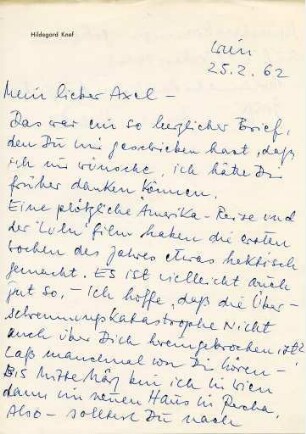 Hildegard Knef
Wien
25.2.62
Mein lieber Axel –
Das war ein so herzlicher Brief,
den Du mir geschrieben hast, daß
ich mir wünsche, ich hätte Dir
früher danken können.
Eine plötzliche Amerika-Reise und
der "Lulu" film haben die ersten
Wochen des Jahres etwas hektisch
gemacht. Es ist vielleicht auch
gut so, – Ich hoffe, daß die Über-
schwemmungskatastrophe nicht
auch über Dich hereingebrochen ist?
Laß manchmal von Dir hören –
Bis Mitte März bin ich in Wien
dann im neuen Haus in Percha.
Also – solltest Du nach